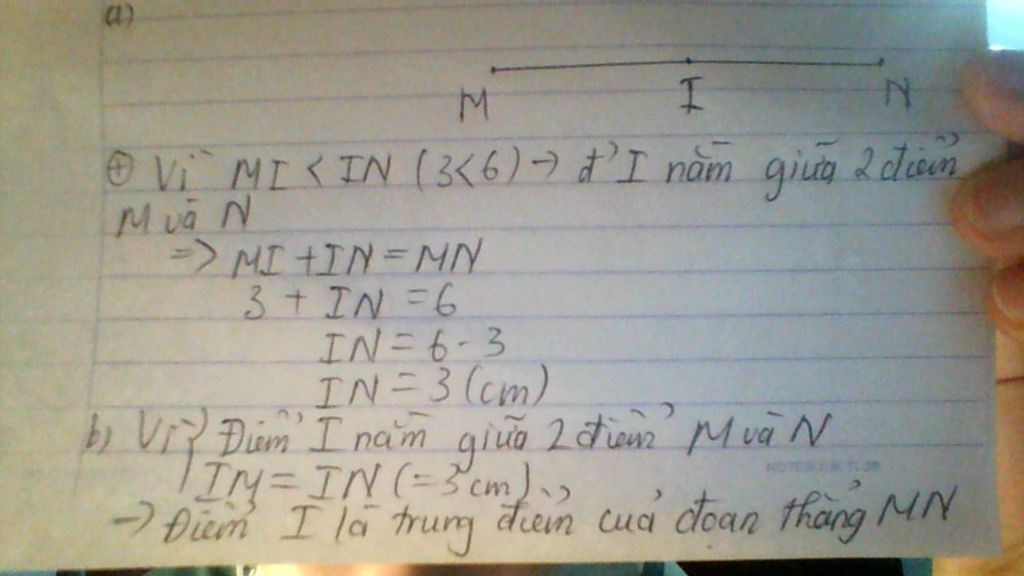 a)
M I N
⊕ Vì MI < IN (3<6) → đ' I nằm giữa 2 điểm
M và N
=> MI + IN = MN
3 + IN = 6
IN = 6 - 3
IN = 3 (cm)
b) Vì { Điểm I nằm giữa 2 điểm M và N
IM = IN (= 3 cm)
→ Điểm I là trung điểm của đoạn thẳng MN